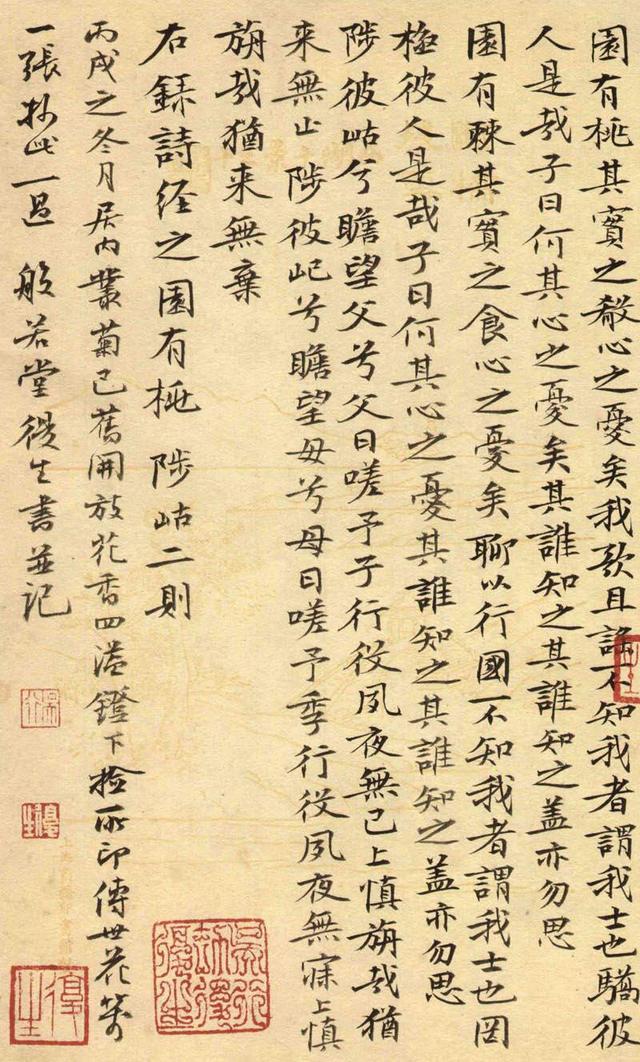 園有桃其實之殽心之憂矣我歌且謠不知我者謂我士也驕彼
人是哉子曰何其心之憂矣其誰知之其誰知之蓋亦勿思
園有棘其實之食心之憂矣聊以行國不知我者謂我士也罔
極彼人是哉子曰何其心之憂其誰知之其誰知之蓋亦勿思
陟彼岵兮瞻望父兮父曰嗟予子行役夙夜無已上慎旃哉猶
来無止 陟彼屺兮瞻望母兮母曰嗟予季行役夙夜無寐上慎
旃哉猶来無棄
右録詩经之園有桃 陟岵二則
丙戌之冬月居内叢菊已舊開放花香四溢鐙下捡所印傳世花箋
一張抄此一過 般若堂復生書並記
復生